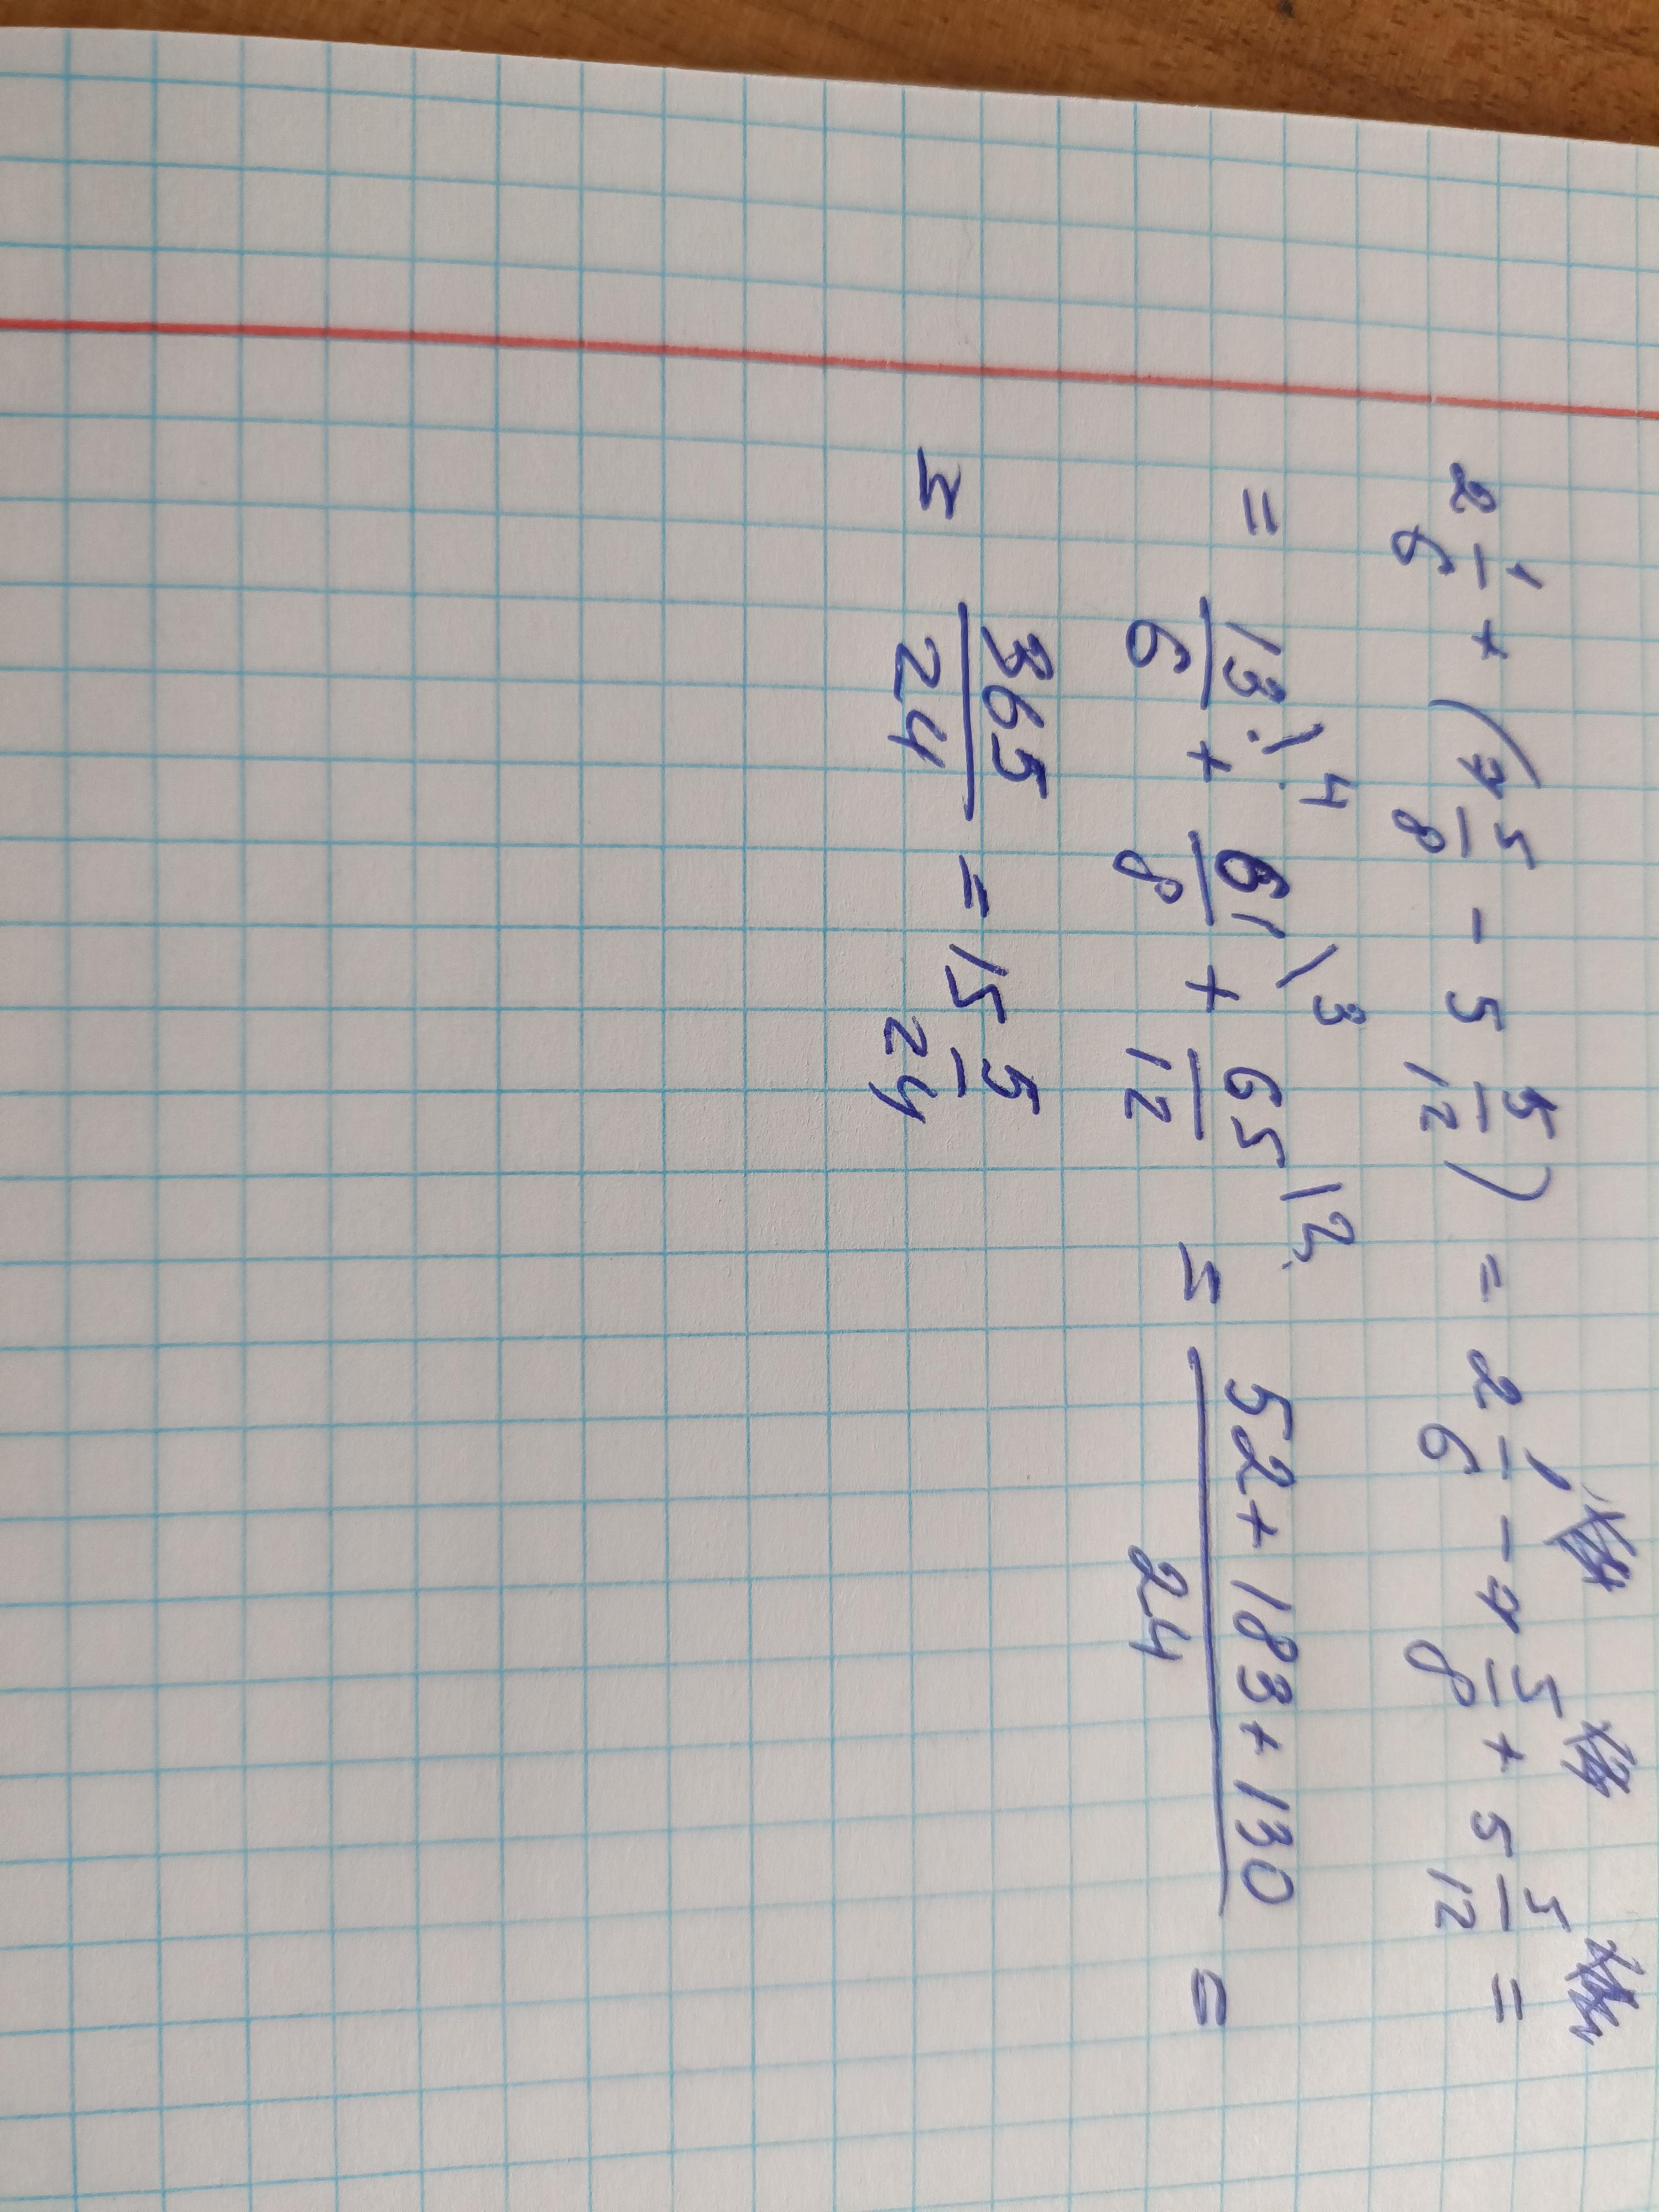 2 1/6 + (7 5/8 - 5 5/12) = 2 1/6 - 7 5/8 + 5 5/12 =
= 13/6 \4 + 61/8 \3 + 65/12 \2 = (52 + 183 + 130)/24 =
= 365/24 = 15 5/24